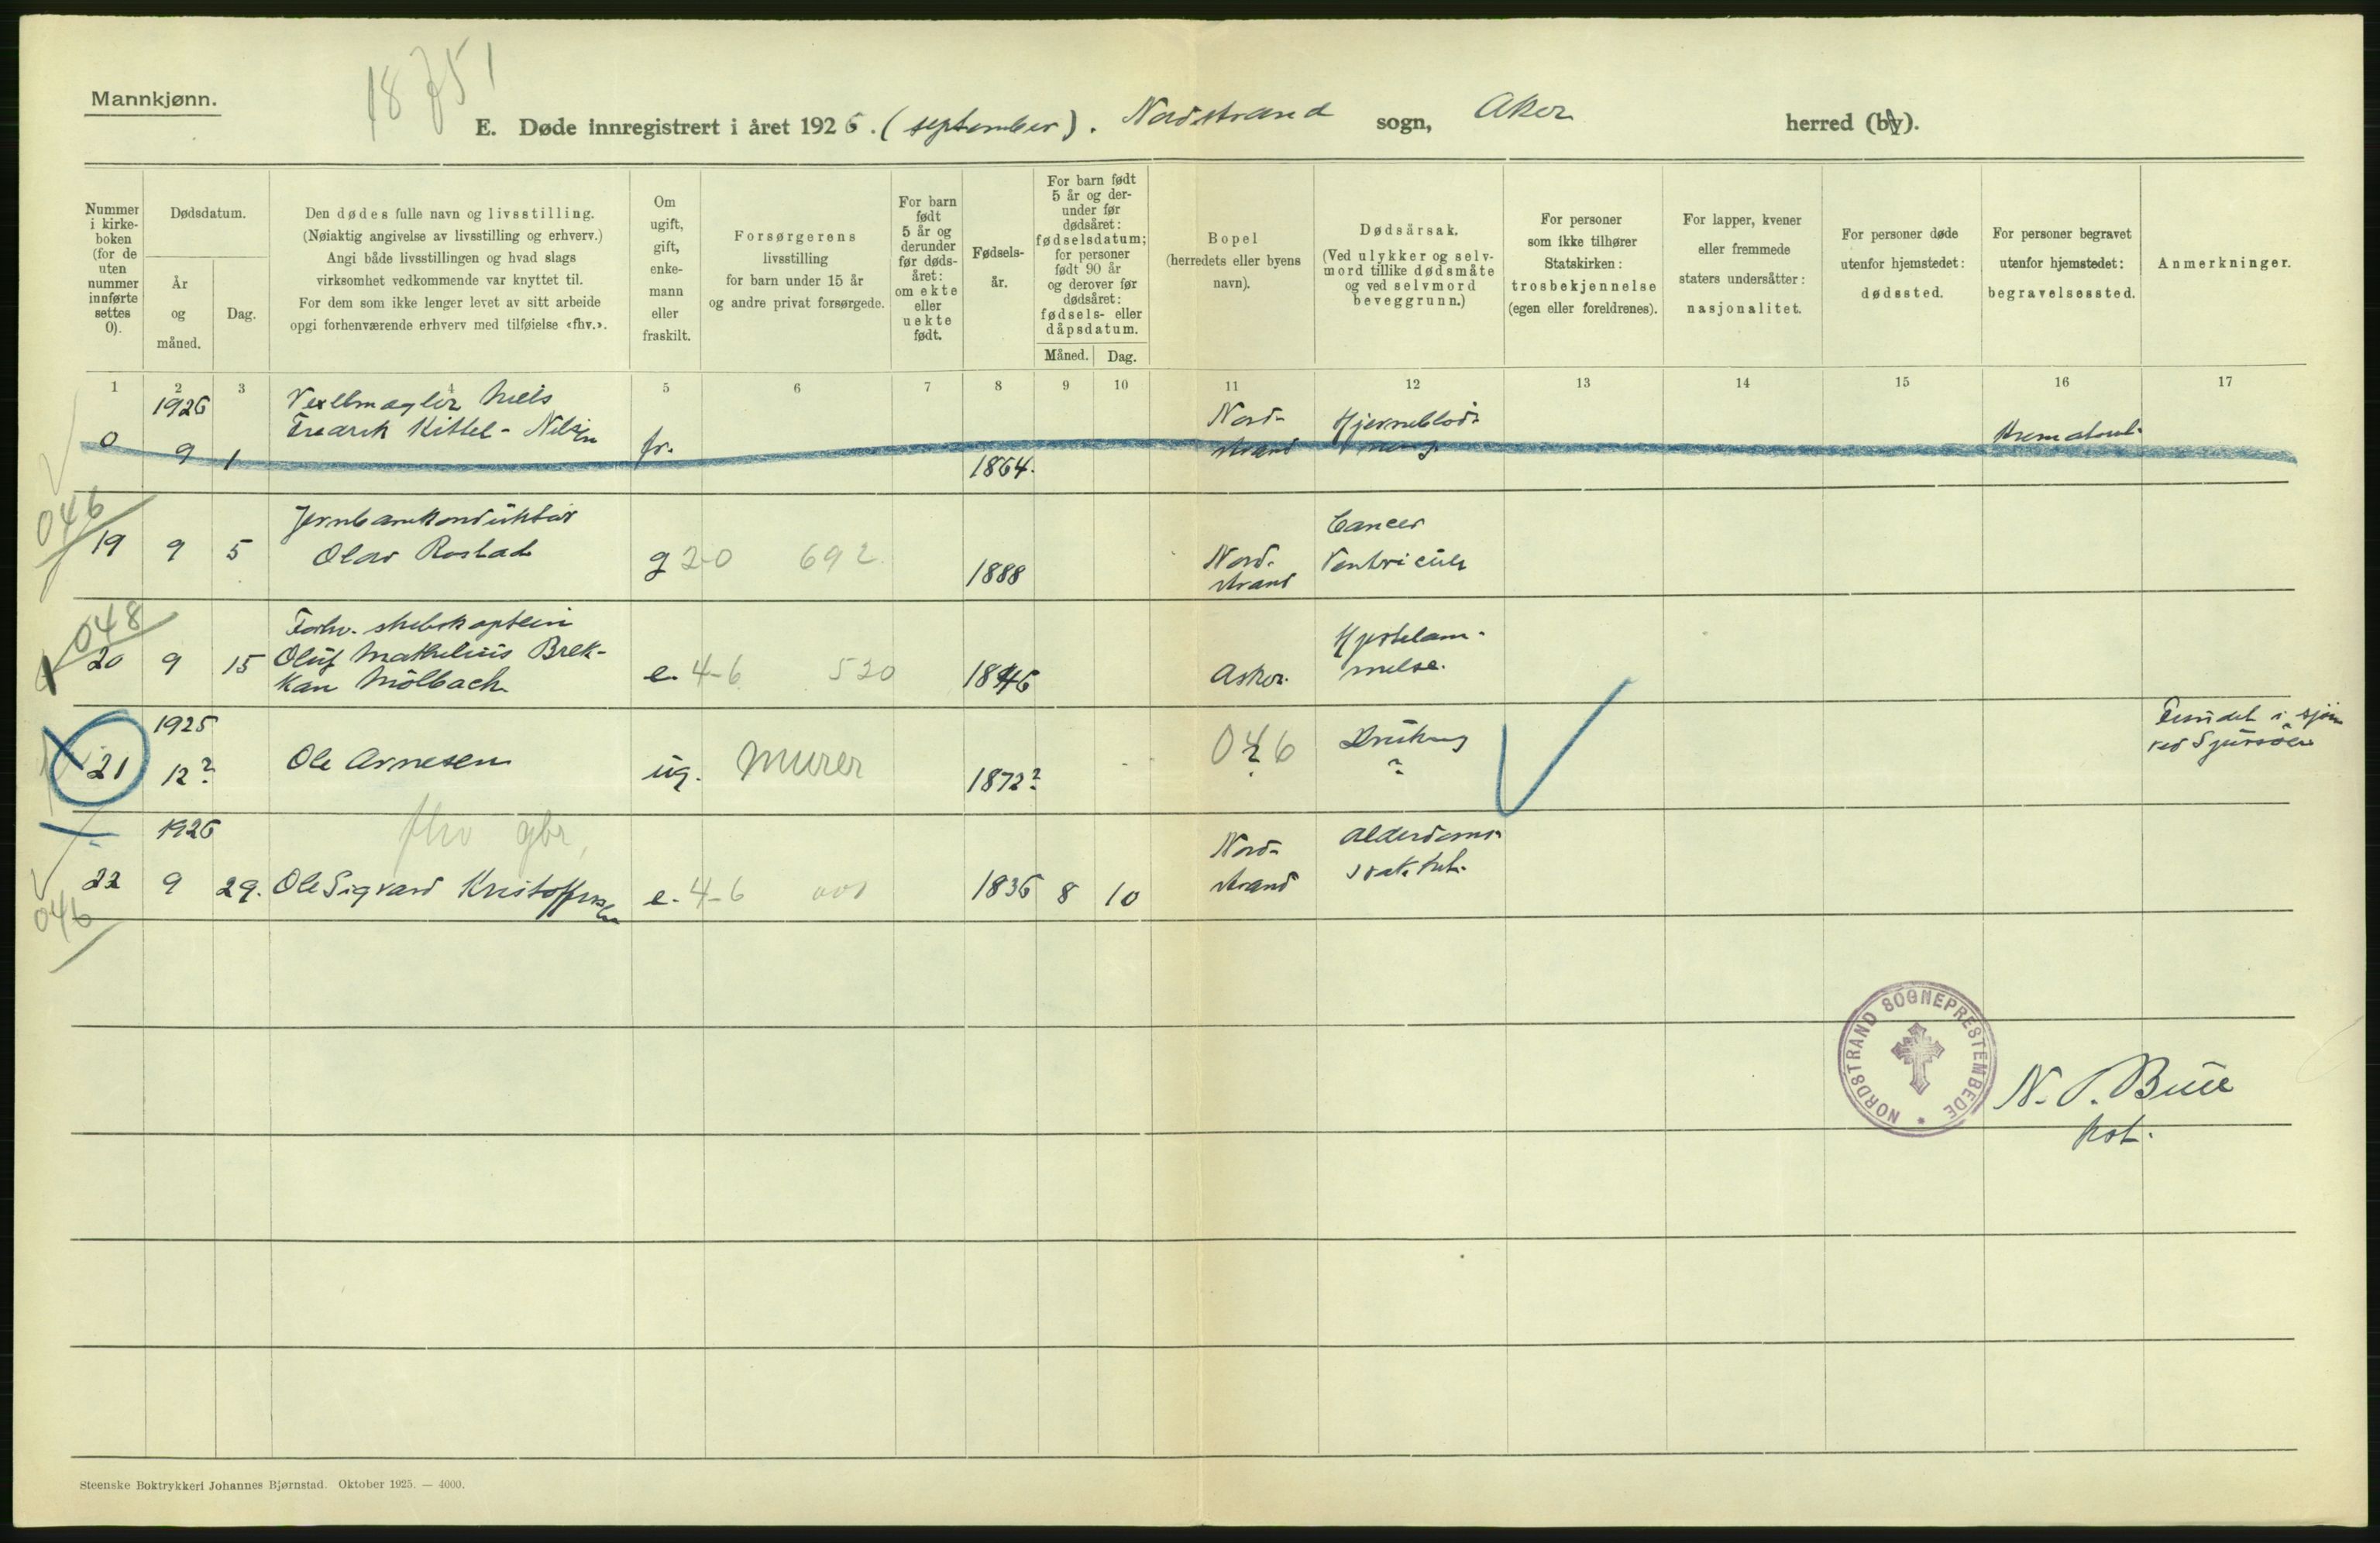 Mannkjønn.
18751
E. Døde innregistrert i året 1926. (september). Nordstrand sogn, Aker herred (by).
Nummer i kirke-boken (for de uten nummer innførte settes 0).
Dødsdatum.
År og måned.
Dag.
Den dødes fulle navn og livsstilling.
(Nøiaktig angivelse av livsstilling og erhverv.)
Angi både livsstillingen og hvad slags
virksomhet vedkommende var knyttet til.
For dem som ikke lenger levet av sitt arbeide
opgi forhenværende erhverv med tilføielse «fhv.».
Om ugift, gift, enke-mann eller fraskilt.
Forsørgerens
livsstilling
for barn under 15 år
og andre privat forsørgede.
For barn født 5 år og derunder før døds-året: om ekte eller uekte født.
Fødsels-år.
For barn født 5 år og der-under før dødsåret: fødselsdatum; for personer født 90 år og derover før dødsåret: fødsels- eller dåpsdatum.
Måned. Dag.
Bopel
(herredets eller byens
navn).
Dødsårsak.
(Ved ulykker og selv-
mord tillike dødsmåte
og ved selvmord
beveggrunn.)
For personer
som ikke tilhører
Statskirken:
trosbekjennelse
(egen eller foreldrenes).
For lapper, kvener
eller fremmede
staters undersåtter:
nasjonalitet.
For personer døde
utenfor hjemstedet:
dødssted.
For personer begravet
utenfor hjemstedet:
begravelsessted.
Anmerkninger.
1 2 3 4 5 6 7 8 9 10 11 12 13 14 15 16 17
1926 Vexelmægler Niels Nord- Hjerneblød-
0 9 1 Fredrik Kittel-Nilsen fr. 1864. strand ning
046
Jernbanekonduktør Cancer
19 9 5 Olav Rostad g 2-0 692 1888 Nord-strand Ventriculi
048
Forhv. skibskaptein
20 9 15 Oluf Mathelius Brek- e. 4-6 520 1846 Asker. Hjertelam-
kan Mölbach melse.
1925
21 12? Ole Arnesen ug. Murer 1872? 046 ? Drukning ? Fundet i sjøen
ved Sjursøen
1926 fhv gbr, Nord- Alderdoms-
22 9 29. Ole Sigvard Kristoffersen e. 4-6 001 1836 8 10 strand svakhet.
046
NORDSTRAND SOGNEPRESTEMBEDE
N. P. Bull
kst.
Steenske Boktrykkeri Johannes Bjørnstad. Oktober 1925. — 4000.